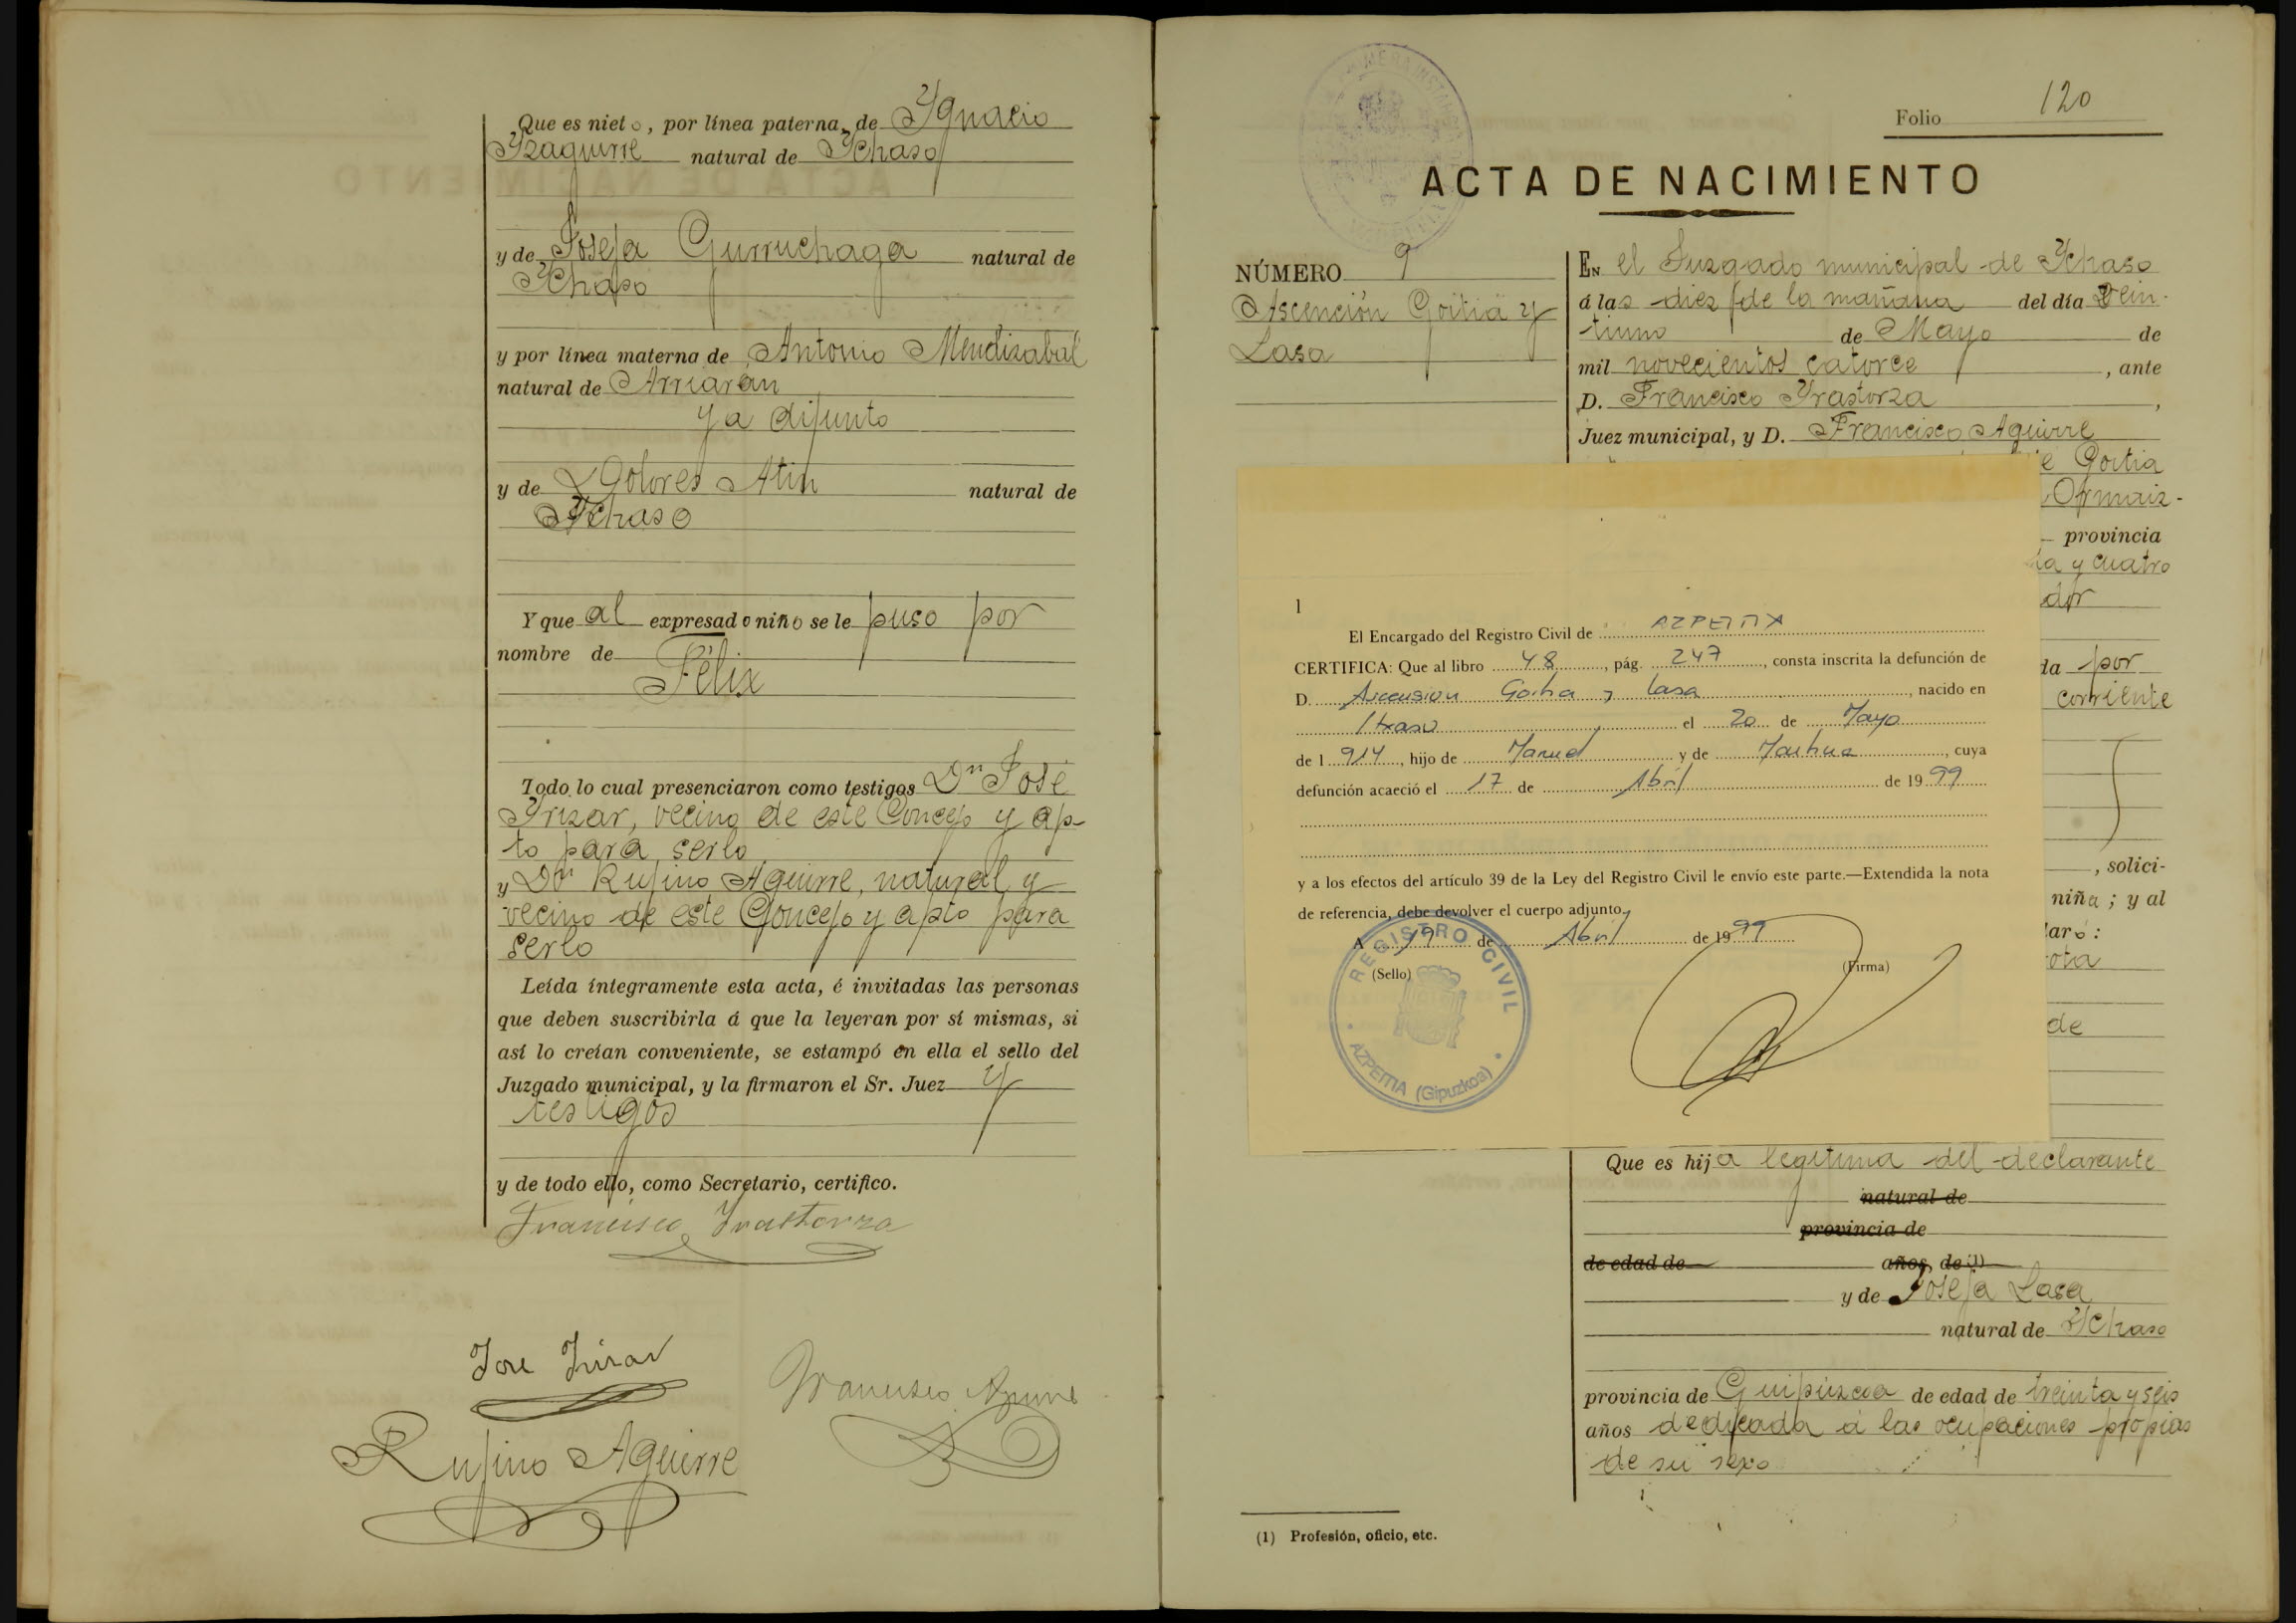 Que es nieto, por línea paterna, de Ygnacio
Yzaguirre natural de Ychaso
y de Josefa Gurruchaga natural de
Ychaso
y por línea materna de Antonio Mendizabal
natural de Arriarán
ya difunto
y de Dolores Atin natural de
Ychaso
Y que al expresado niño se le puso por
nombre de
Félix
Todo lo cual presenciaron como testigos Dn José
Yrizar, vecino de este Concejo y ap-
to para serlo
y Dn Rufino Aguirre, natural y
vecino de este Concejo y apto para
serlo
Leída íntegramente esta acta, é invitadas las personas
que deben suscribirla á que la leyeran por sí mismas, si
así lo creían conveniente, se estampó en ella el sello del
Juzgado municipal, y la firmaron el Sr. Juez y
testigos
y de todo ello, como Secretario, certifico.
Francisco Yrastorza
José Yrizar
Francisco Aguirre
Rufino Aguirre
Folio 120
ACTA DE NACIMIENTO
NÚMERO 9
Ascención Goitia y
Lasa
En el Juzgado municipal de Ychaso
á las diez de la mañana del día vein-
tiuno de Mayo de
mil novecientos catorce, ante
D. Francisco Yrastorza,
Juez municipal, y D. Francisco Aguirre
Goitia
Ormaiz-
provincia
y cuatro
por
corriente
, solici-
niña; y al
de
1
El Encargado del Registro Civil de AZPEITIA
CERTIFICA: Que al libro 48, pág. 247, consta inscrita la defunción de
D. Ascension Goitia y Lasa, nacido en
Itxaso el 20 de Mayo
de 1914, hijo de Manuel y de, cuya
defunción acaeció el 17 de Abril de 1999
y a los efectos del artículo 39 de la Ley del Registro Civil le envío este parte.—Extendida la nota
de referencia, debe devolver el cuerpo adjunto.
A 19 de Abril de 1999
(Sello) (Firma)
REGISTRO CIVIL
AZPEITIA (Gipuzkoa)
Que es hija legítima del declarante
natural de
provincia de
de edad de años, de (1)
y de Josefa Lasa
natural de Ychaso
provincia de Guipúzcoa de edad de treinta y seis
años dedicada á las ocupaciones propias
de su sexo
(1) Profesión, oficio, etc.